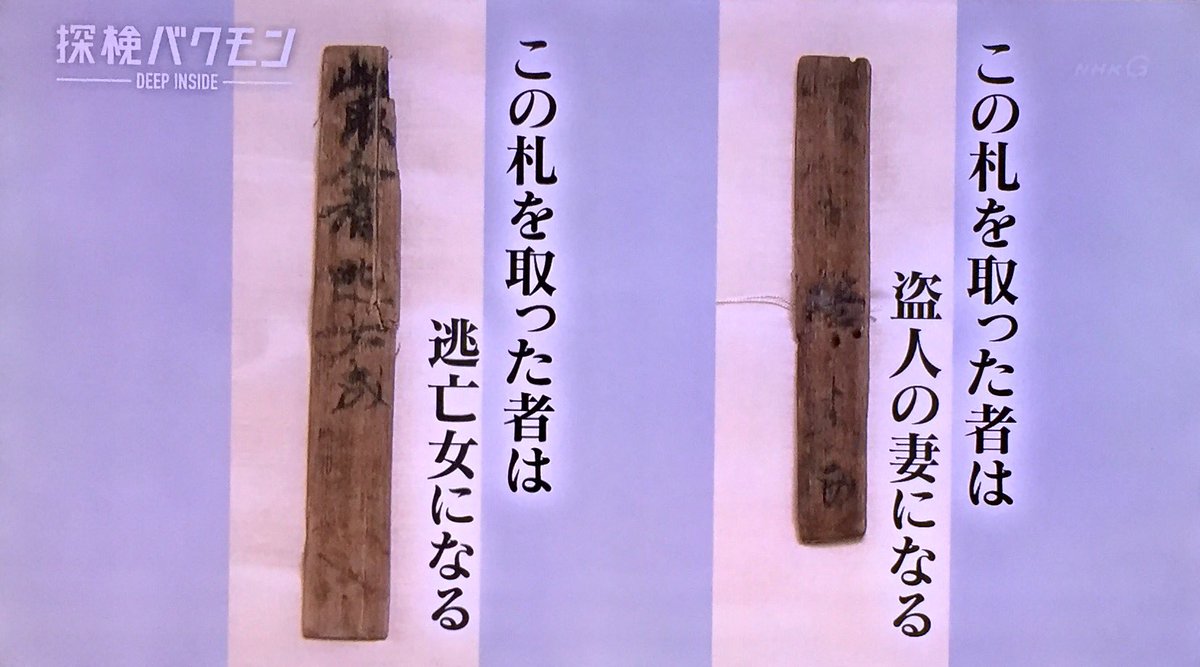 探検バクモン
DEEP INSIDE
NHK G
この札を取った者は
盗人の妻になる
この札を取った者は
逃亡女になる
此取人者